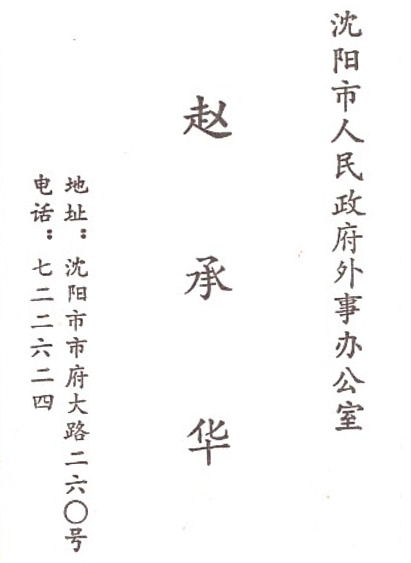 沈阳市人民政府外事办公室
赵承华
地址：沈阳市市府大路二六〇号
电话：七二二六二四